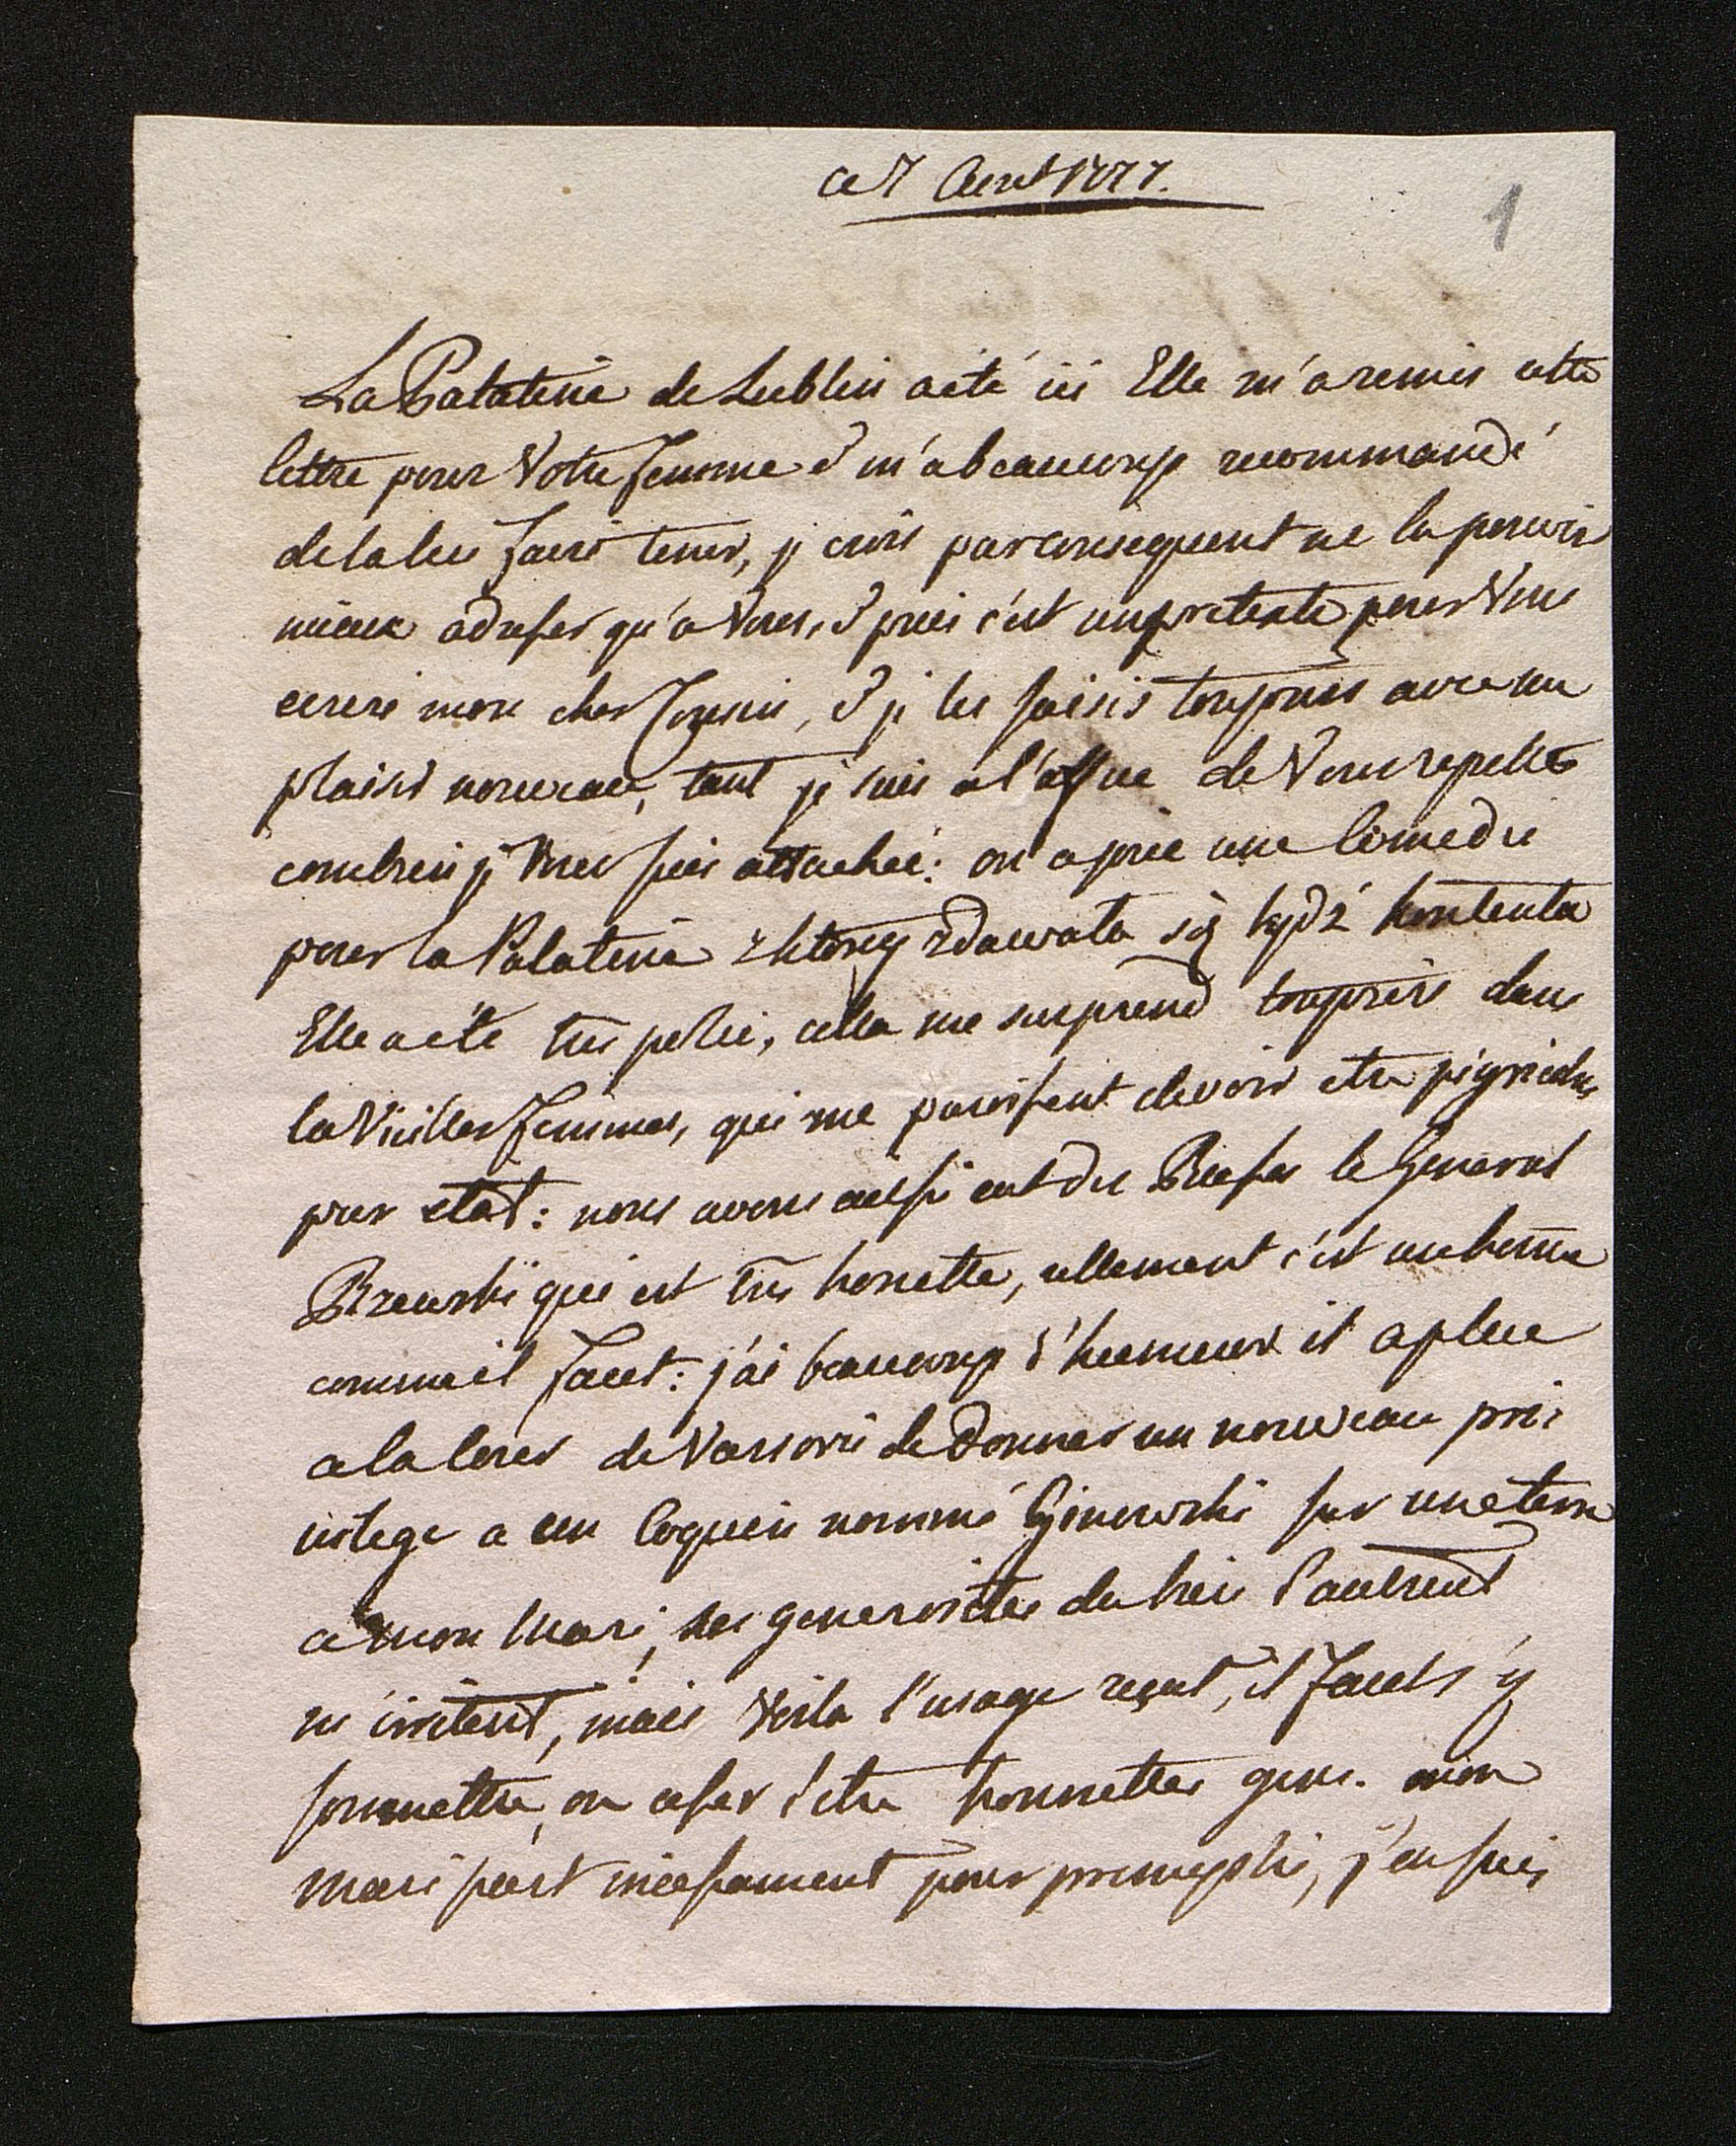 ce 7 Aout 1777.
1
La Palatine de Lublin a eté ici Elle m'a remis cette
lettre pour Votre femme & m'a beaucoup recommandé
de la lui faire tenir, je crois par consequent ne la pouvoir
mieux adresser qu'a Vous, & puis c'est un pretexte pour Vous
ecrire mon cher Cousin, & je les saisis toujours avec un
plaisir nouveau, tant je suis a l'affue de Vous repetter
combien je Vous suis attachée: on a joué une Comedie
pour la Palatine z ktorey zdawała się bydź kontenta
Elle a eté tres polie, cella me surprend toujours dans
la Vieilles femmes, qui me paroissent devoir etre
par etat: nous avons aussi eut du Busses le General
Rzewski qui est tres honette, ellement c'est un homme
comme il faut: j'ai beaucoup d'humeur it a plue
a la Cour de Varsovie de donner un nouveau privi
vilege a un Coquin nommé sur une terre
a mon Mari, les generosités du bien d'autruit
m'irritent, mais Voila l'usage reçut, il faut s'y
soumettre, ou cesser d'etre honnettes gens. mon
Mari part incessament pour, j'en suis